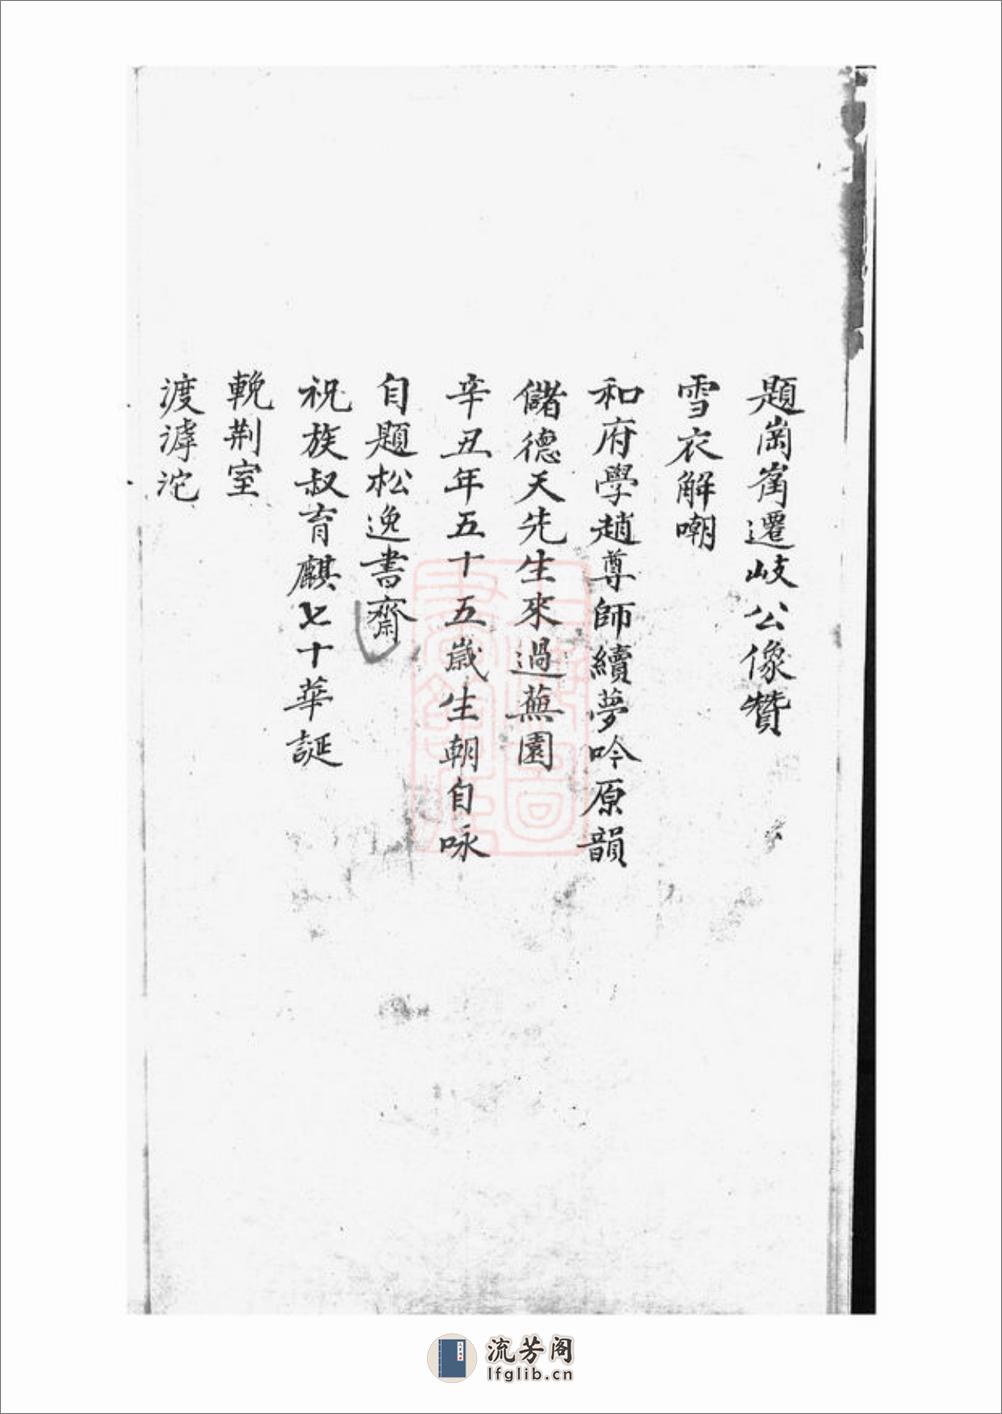 題崗崗遷岐公像贊
雪衣解嘲
和府學趙尊師續夢吟原韻
儲德天先生來過蕪園
辛丑年五十五歲生朝自咏
自題松逸書齋
祝族叔育麒七十華誕
輓荆室
渡滹沱
流芳阁
lfglib.cn